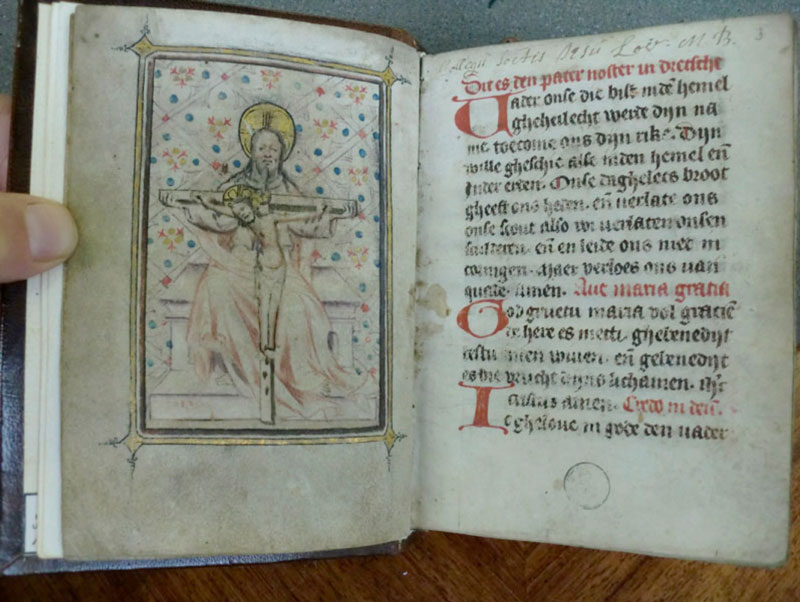 Collegii Soctis Jesu Lov. M. B. 3
Dit es den pater noster in dietsche
Uader onse die bist indē hemel
gheheilecht werde dijn na
me toecome ons dijn rike. Dijn
wille gheschie alse inden hemel eñ
inder erden. Onse daghelecs broot
gheeft ons heden. eñ verlate ons
onse scout also wi verlaten onsen
sculderen. eñ en leide ons niet in
coringen. Maer verloes ons van
quade. Amen. Aue maria gracia
God gruetu maria vol graciē
de here es metti. ghebenedijt
bestu. Jnen wiuen. eñ gebenedijt
es die vrucht dijns lichamen.
amen. Credo in deū.
Ic gheloue in gode den uader